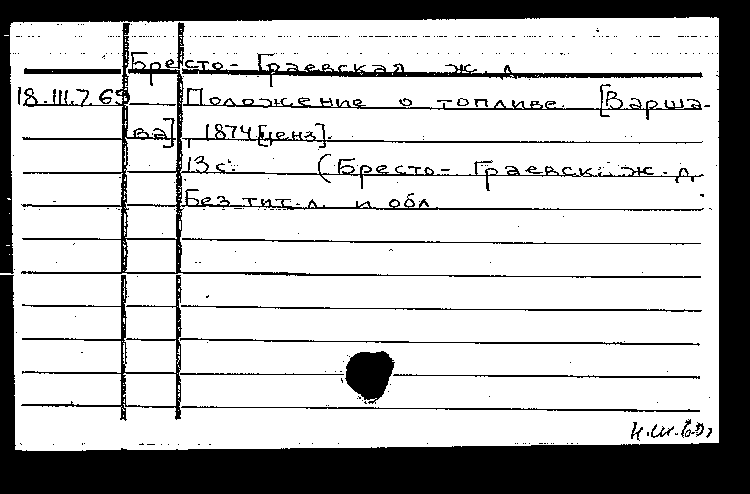 Бресто-Граевская ж. д
18.III.7.69 Положение о топливе. [Варша-
ва], 1874 [ценз].
13 с. (Бресто-Граевск. ж. д.
Без тит. л. и обл